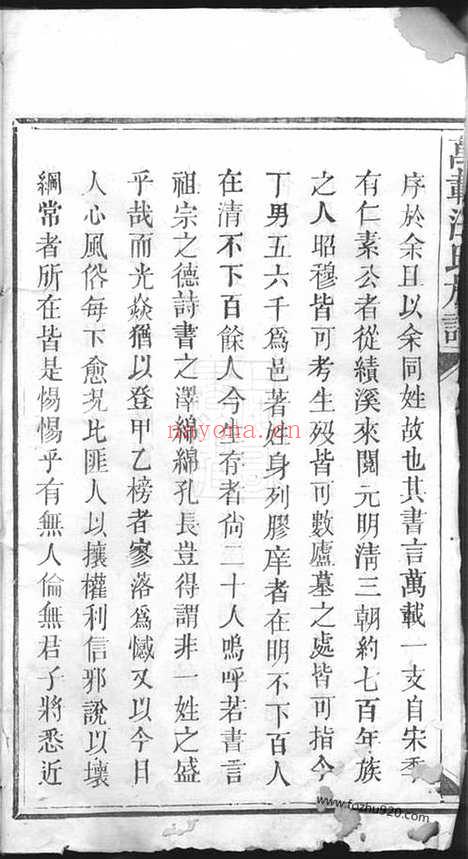 萬載汪氏族譜
序於余且以余同姓故也其書言萬載一支自宋季
有仁素公者從績溪來閱元明清三朝約七百年族
之人昭穆皆可考生歿皆可數廬墓之處皆可指今
丁男五六千爲邑著姓身列膠庠者在明不下百人
在清不下百餘人今生存者尙二十人嗚呼若書言
祖宗之德詩書之澤綿綿孔長豈得謂非一姓之盛
乎哉而光焱猶以登甲乙榜者寥落爲憾又以今日
人心風俗每下愈況比匪人以攘權利信邪說以壞
綱常者所在皆是惕惕乎有無人倫無君子將悉近
nayona.cn
www.fozhu920.com